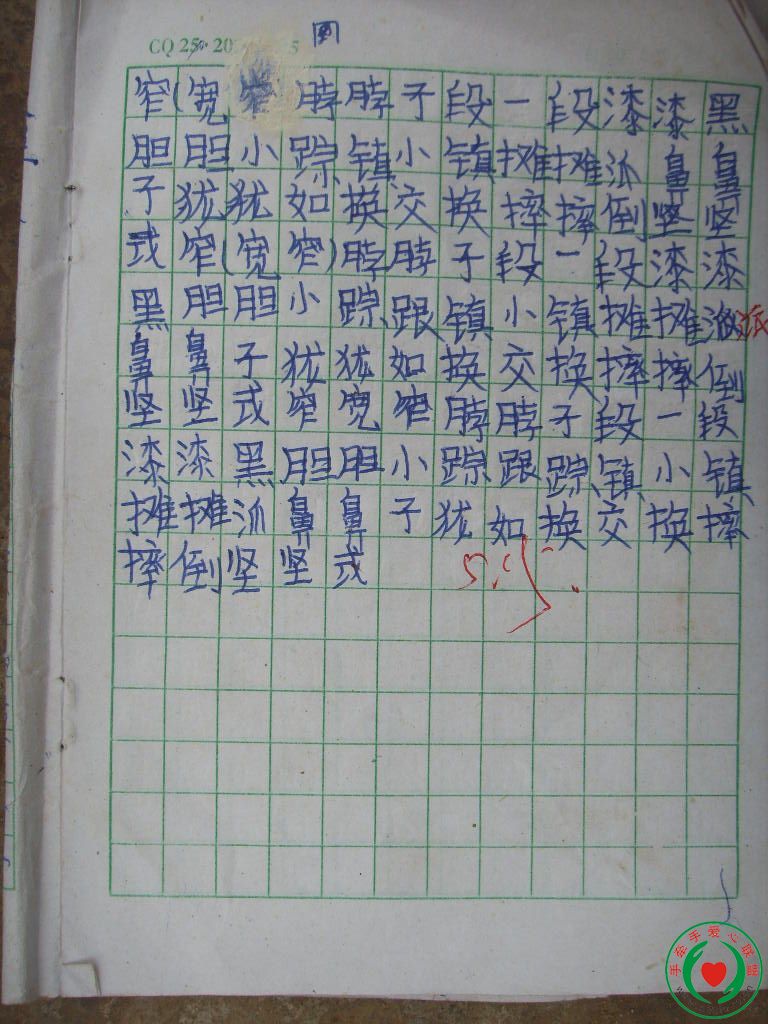 CQ 25 20 5
窄(宽窄脖脖子段一段漆漆黑
胆胆小踪镇小镇摊摊派鼻鼻
子犹犹如换交换摔摔倒坚坚
或窄(宽窄)脖脖子段一段漆漆
黑胆胆小踪跟镇小镇摊摊派
鼻鼻子犹犹如换交换摔摔倒
坚坚或窄宽窄脖脖子段一段
漆漆黑胆胆小踪跟踪镇小镇
摊摊派鼻鼻子犹如换交换摔
摔倒坚坚或
手牵手爱心联盟